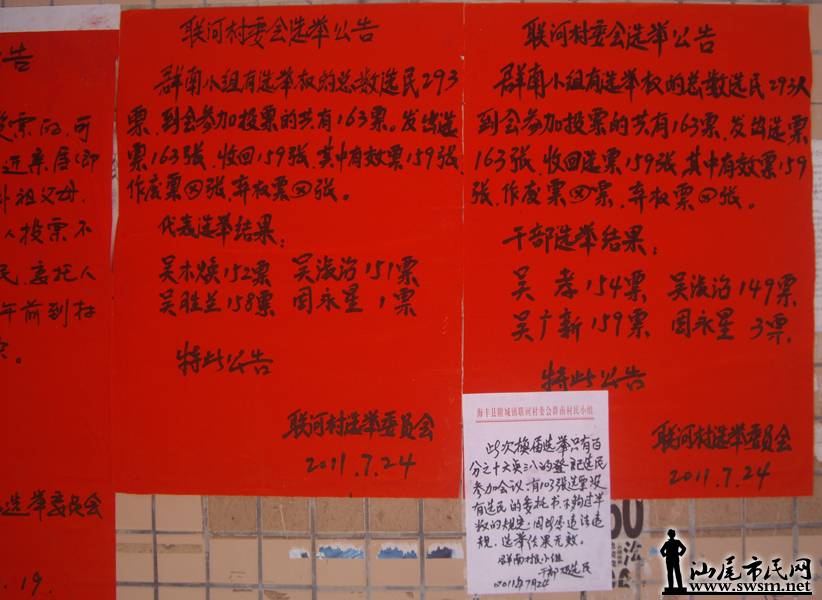 告
票的,可
近亲居(即
外祖父母,
人投票不
民,委托人
午前到村
选举委员会
.19.
联河村委会选举公告
群南小组有选举权的总数选民293
票,到会参加投票的共有163票。发出选
票163张,收回159张,其中有效票159张,
作废票四张,弃权票四张。
代表选举结果:
吴木焕152票 吴浚治151票
吴胜兰158票 周永星 1票
特此公告
联河村选举委员会
2011.7.24
联河村委会选举公告
群南小组有选举权的总数选民293人
到会参加投票的共有163票,发出选票
163张,收回选票159张,其中有效票159
张,作废票四票,弃权票四张。
干部选举结果:
吴 孝154票 吴浚治149票
吴广新159票 周永星 3票
特此公告
联河村选举委员会
2011.7.24
海丰县附城镇联河村委会群南村民小组
此次换届选举只有百
分之十六点三八的登记选民
参加会议,有103张选票没
有选民的委托书,不够过半
数的规定,因此是违法违
规,选举结果无效。
群南村小组
干部 选民
2011年7月24
汕尾市民网
www.swsm.net